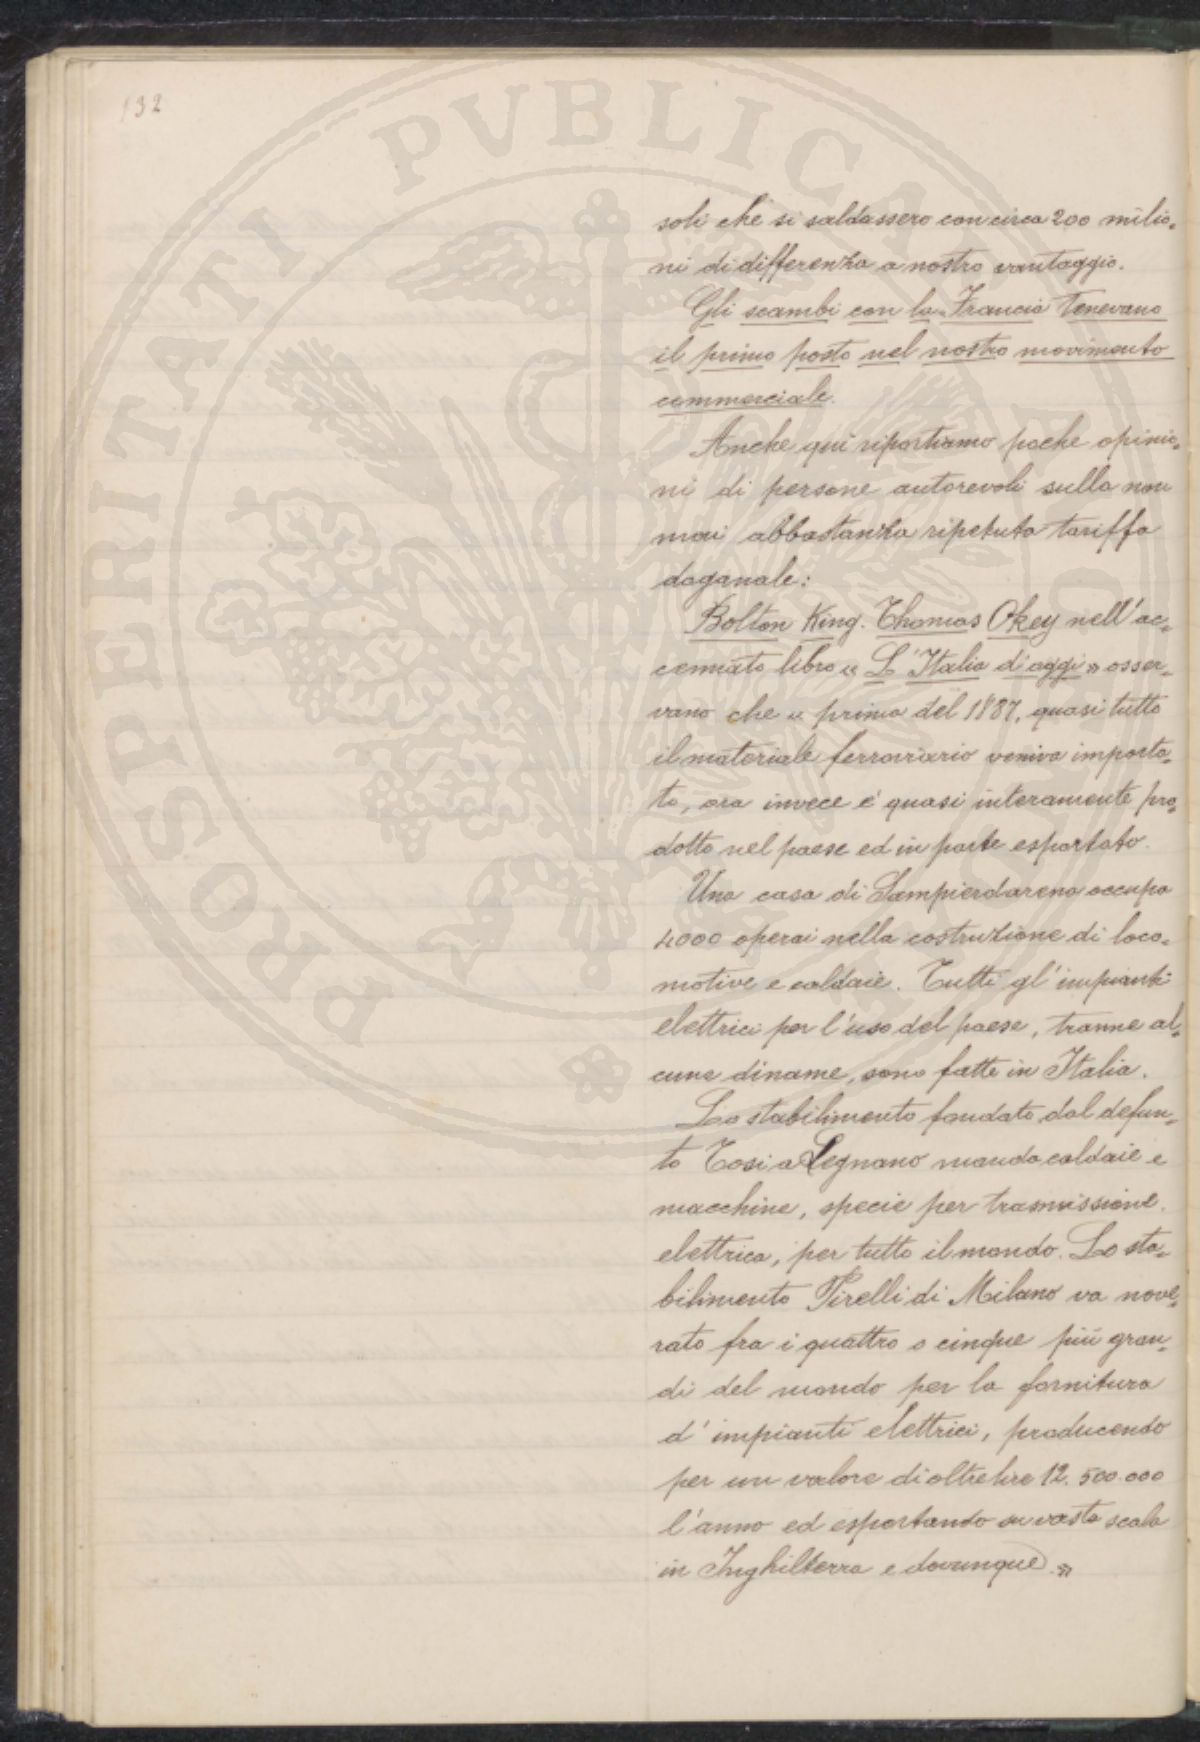 132
PROSPERITATI PVBLICAE
soli che si saldassero con circa 200 milio=
ni di differenza a nostro vantaggio.
Gli scambi con la Francia tenevano
il primo posto nel nostro movimento
commerciale.
Anche qui riportiamo poche opinio=
ni di persone autorevoli sulla non
mai abbastanza ripetuta tariffa
doganale:
Bolton King. Thomas Okey nell'ac=
cennato libro « L'Italia di oggi » osser=
vano che « prima del 1887, quasi tutto
il materiale ferroviario veniva importa=
to, ora invece è quasi interamente pro=
dotto nel paese ed in parte esportato.
Una casa di Sampierdarena occupa
4000 operai nella costruzione di loco=
motive e caldaie. Tutti gl'impianti
elettrici per l'uso del paese, tranne al=
cune diname, sono fatte in Italia.
Lo stabilimento fondato dal defun=
to Tosi a Legnano manda caldaie e
macchine, specie per trasmissione
elettrica, per tutto il mondo. Lo sta=
bilimento Pirelli di Milano va nove=
rato fra i quattro o cinque più gran=
di del mondo per la fornitura
d'impianti elettrici, producendo
per un valore di oltre lire 12.500.000
l'anno ed esportando su vasta scala
in Inghilterra e dovunque. »